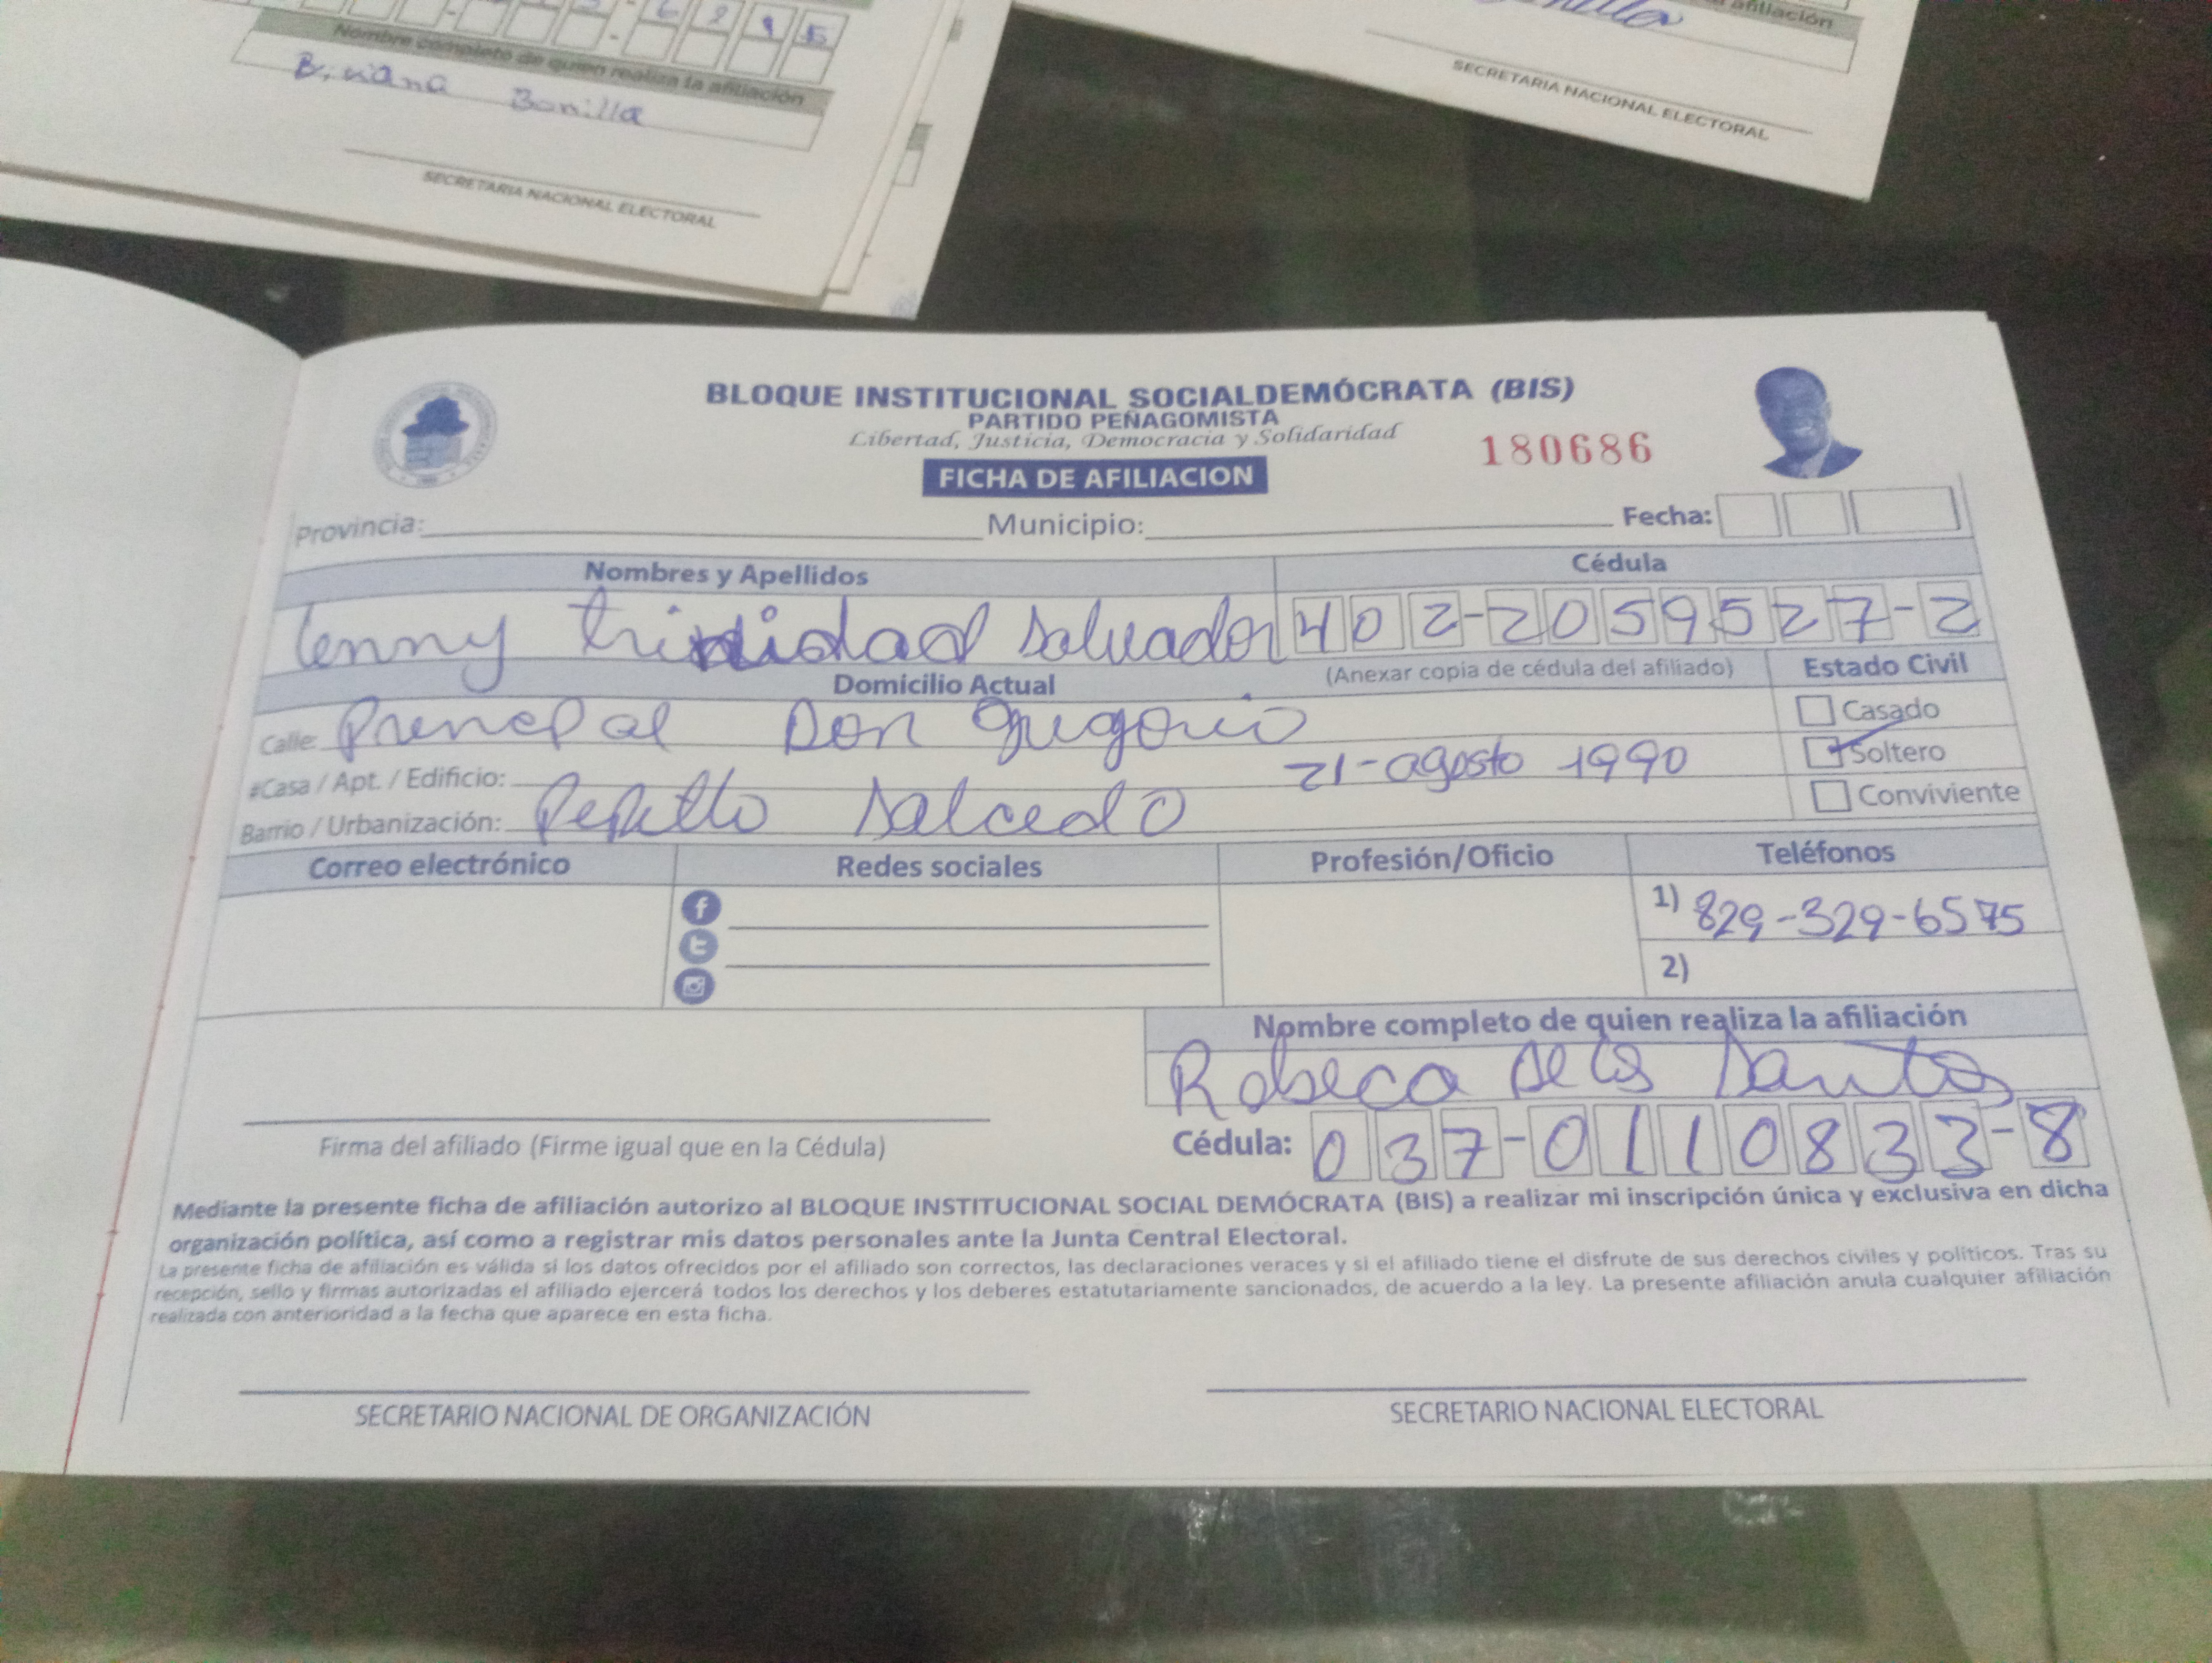 Nombre completo de quien realiza la afiliación
Biviana Bonilla
SECRETARIA NACIONAL ELECTORAL
afiliación
SECRETARIA NACIONAL ELECTORAL
BLOQUE INSTITUCIONAL SOCIALDEMÓCRATA (BIS)
PARTIDO PEÑAGOMISTA
Libertad, Justicia, Democracia y Solidaridad
180686
FICHA DE AFILIACION
Provincia: Municipio: Fecha:
Nombres y Apellidos Cédula
Tenny trinidad Salvador 402-2059527-2
Domicilio Actual (Anexar copia de cédula del afiliado) Estado Civil
Calle: Prencipal Don gregorio Casado
#Casa / Apt. / Edificio: 21-agosto 1990 Soltero
Barrio / Urbanización: Pepillo Salcedo Conviviente
Correo electrónico Redes sociales Profesión/Oficio Teléfonos
1) 829-329-6575
2)
Nombre completo de quien realiza la afiliación
Robeca de los Santos
Cédula: 037-0110833-8
Firma del afiliado (Firme igual que en la Cédula)
Mediante la presente ficha de afiliación autorizo al BLOQUE INSTITUCIONAL SOCIAL DEMÓCRATA (BIS) a realizar mi inscripción única y exclusiva en dicha
organización política, así como a registrar mis datos personales ante la Junta Central Electoral.
La presente ficha de afiliación es válida si los datos ofrecidos por el afiliado son correctos, las declaraciones veraces y si el afiliado tiene el disfrute de sus derechos civiles y políticos. Tras su
recepción, sello y firmas autorizadas el afiliado ejercerá todos los derechos y los deberes estatutariamente sancionados, de acuerdo a la ley. La presente afiliación anula cualquier afiliación
realizada con anterioridad a la fecha que aparece en esta ficha.
SECRETARIO NACIONAL DE ORGANIZACIÓN SECRETARIO NACIONAL ELECTORAL